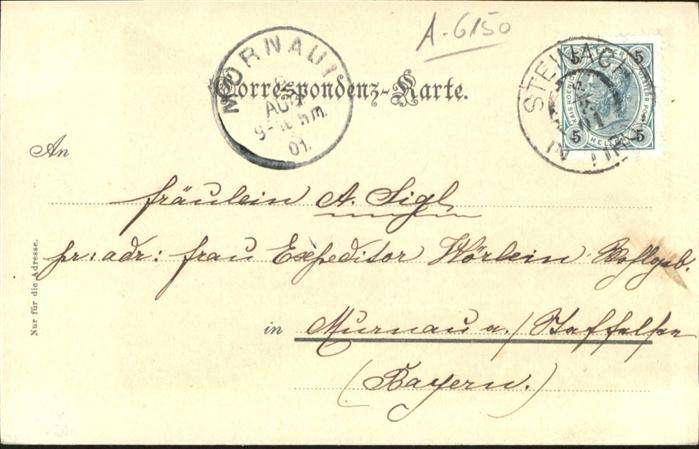 A.6150
MURNAU I
AUG
9-10 Vm.
01.
Correspondenz-Karte.
STEINACH
IN TIROL
5 5
5 HELLER 5
An
Fräulein A. Sigl
pr: adr: Frau Expeditor Wörlein Wohlgeb.
in Murnau a./Staffelsee
(Bayern.)
Nur für die Adresse.